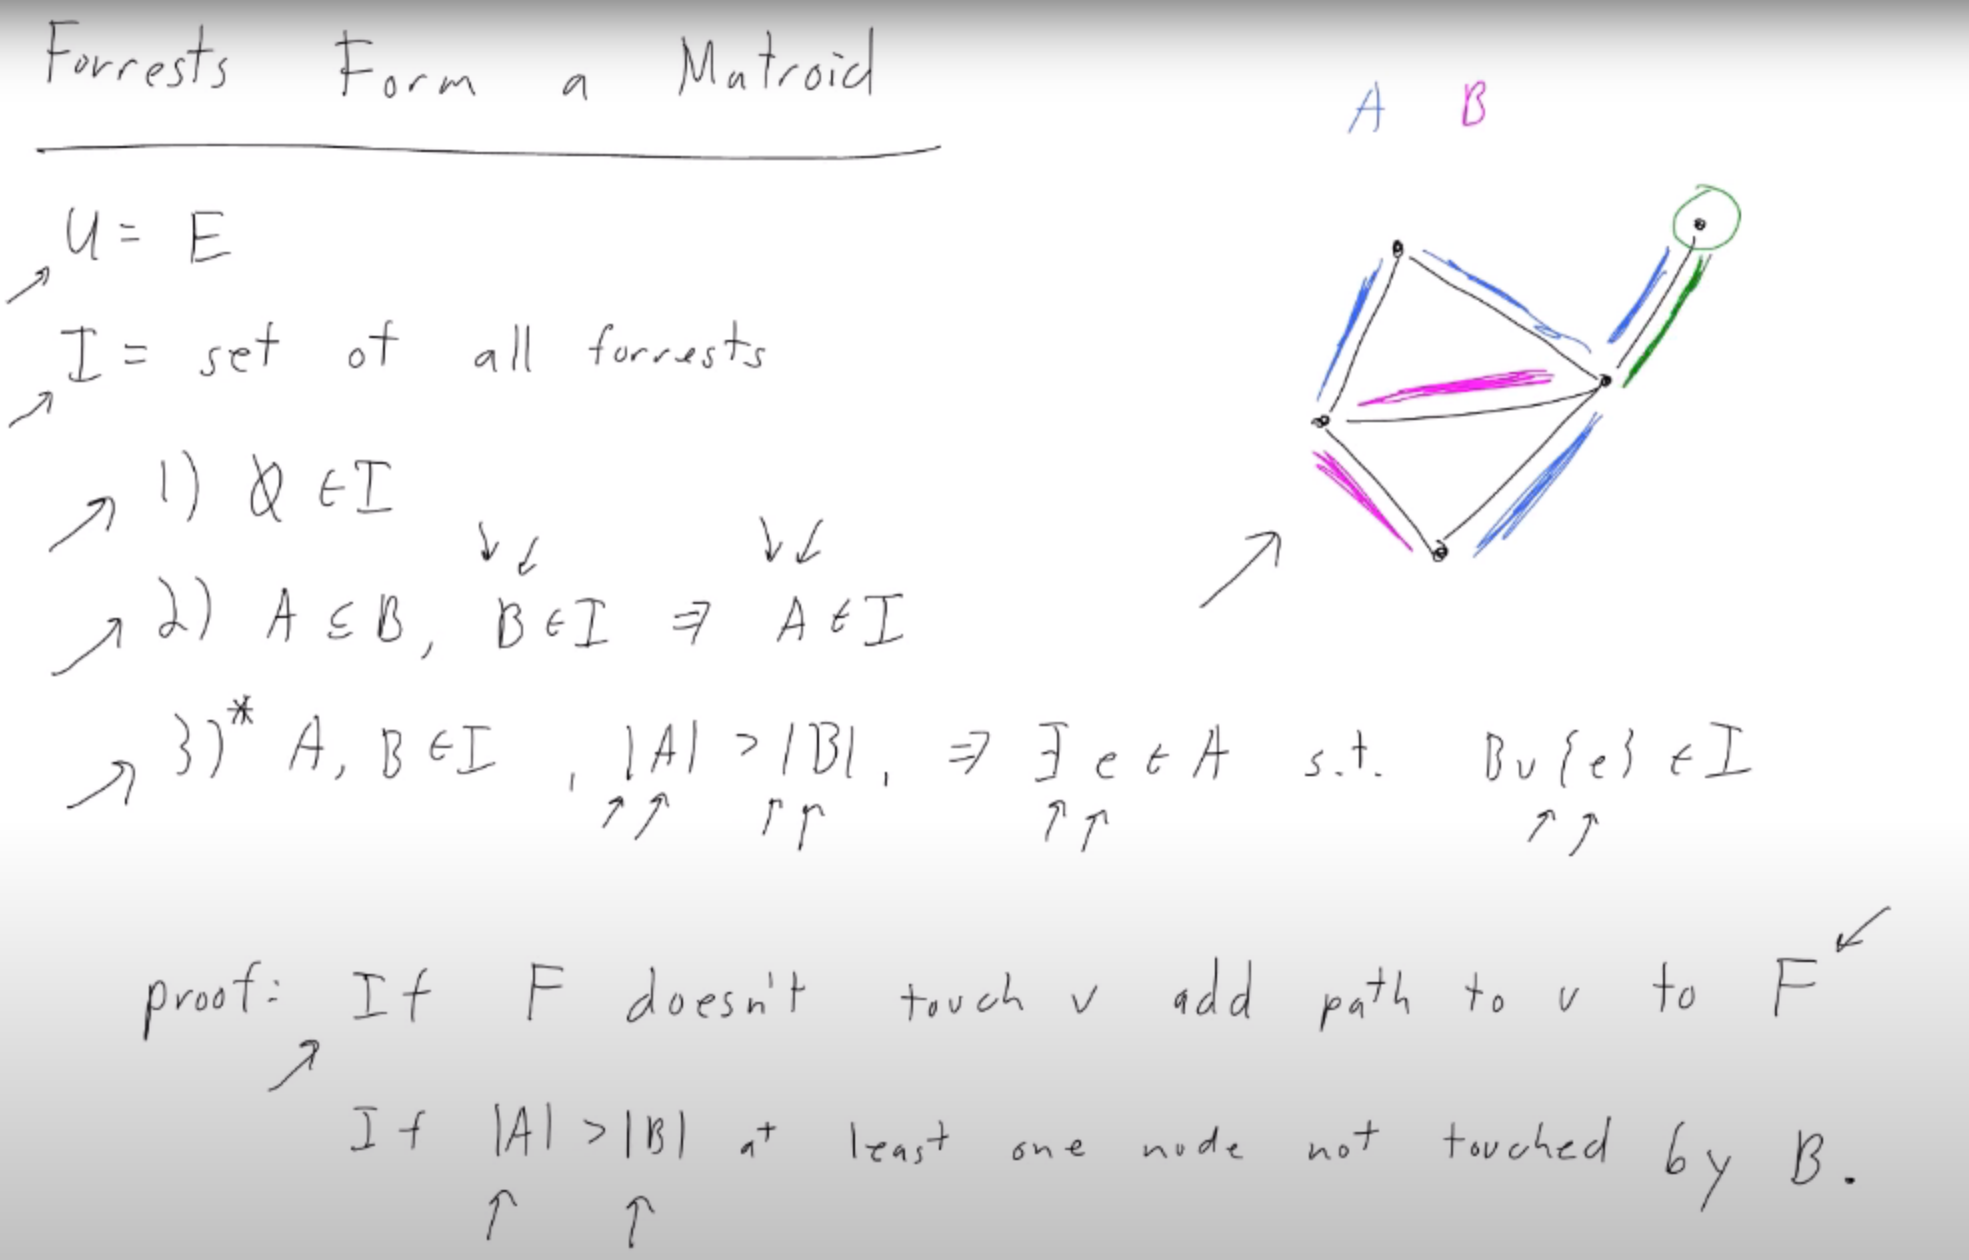 Forrests Form a Matroid
A B
U = E
I = set of all forrests
1) ∅ ∈ I
2) A ⊆ B, B ∈ I ⇒ A ∈ I
3)* A, B ∈ I , |A| > |B|, ⇒ ∃ e ∈ A s.t. B ∪ {e} ∈ I
proof: If F doesn't touch v add path to v to F
If |A| > |B| at least one node not touched by B.